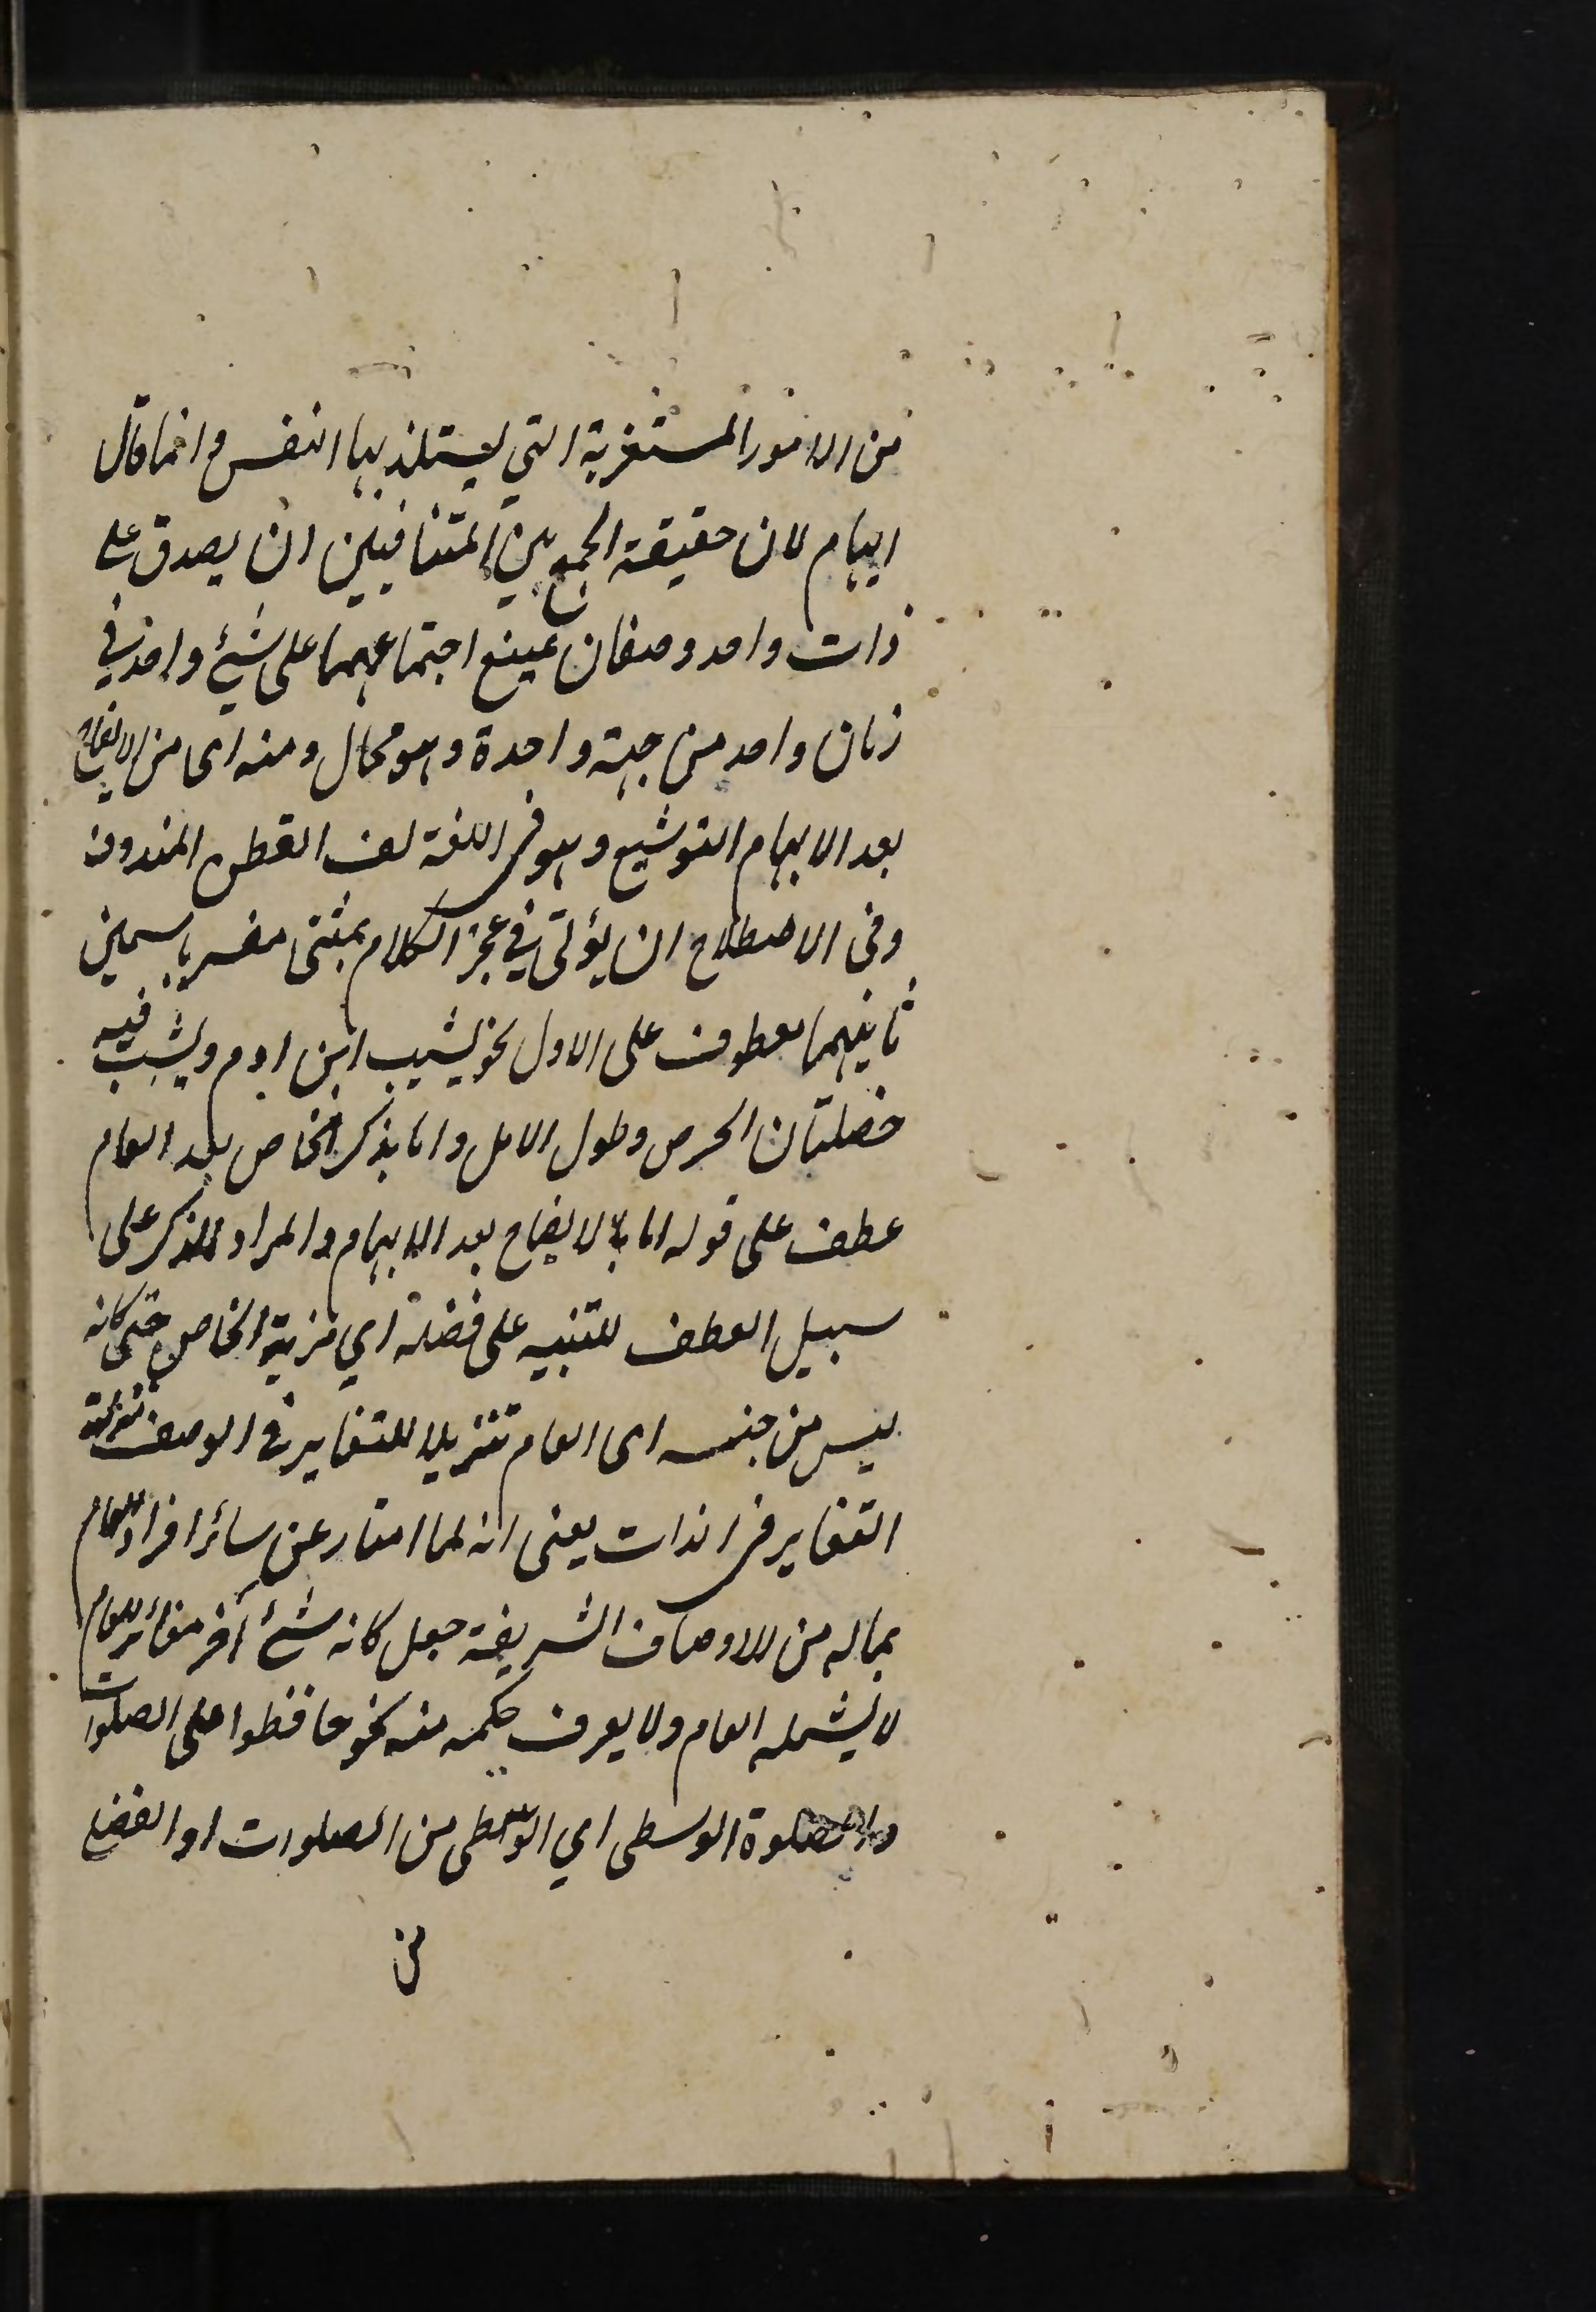 من الامور المستغربة التي يستلذ بها النفس وانما قال
ايهام لان حقيقة الجمع بين المتنافيين ان يصدق على
ذات واحد وصفان يمتنع اجتماعهما على شئ واحد في
زمان واحد من جهة واحدة وهو محال ومنه اى من الايضاح
بعد الابهام التوشيع وهو في اللغة لف القطن المندوف
وفي الاصطلاح ان يؤتى في عجز الكلام بمثنى مفسر باسمين
ثانيهما معطوف على الاول نحو يشيب ابن ادم ويشب فيه
خصلتان الحرص وطول الامل واما بذكر الخاص بعد العام
عطف على قوله اما بالايضاح بعد الابهام والمراد الذكر على
سبيل العطف للتنبيه على فضله اي مزية الخاص حتى كانه
ليس من جنسه اى العام تنزيلا للتغاير في الوصف منزلة
التغاير في الذات يعنى انه لما امتاز عن سائر افراد العام
بماله من الاوصاف الشريفة جعل كانه شئ آخر مغائر للعام
لا يشمله العام ولا يعرف حكمه منه نحو حافظوا على الصلوات
والصلوة الوسطى اي الوسطى من الصلوات او الفضلى
من